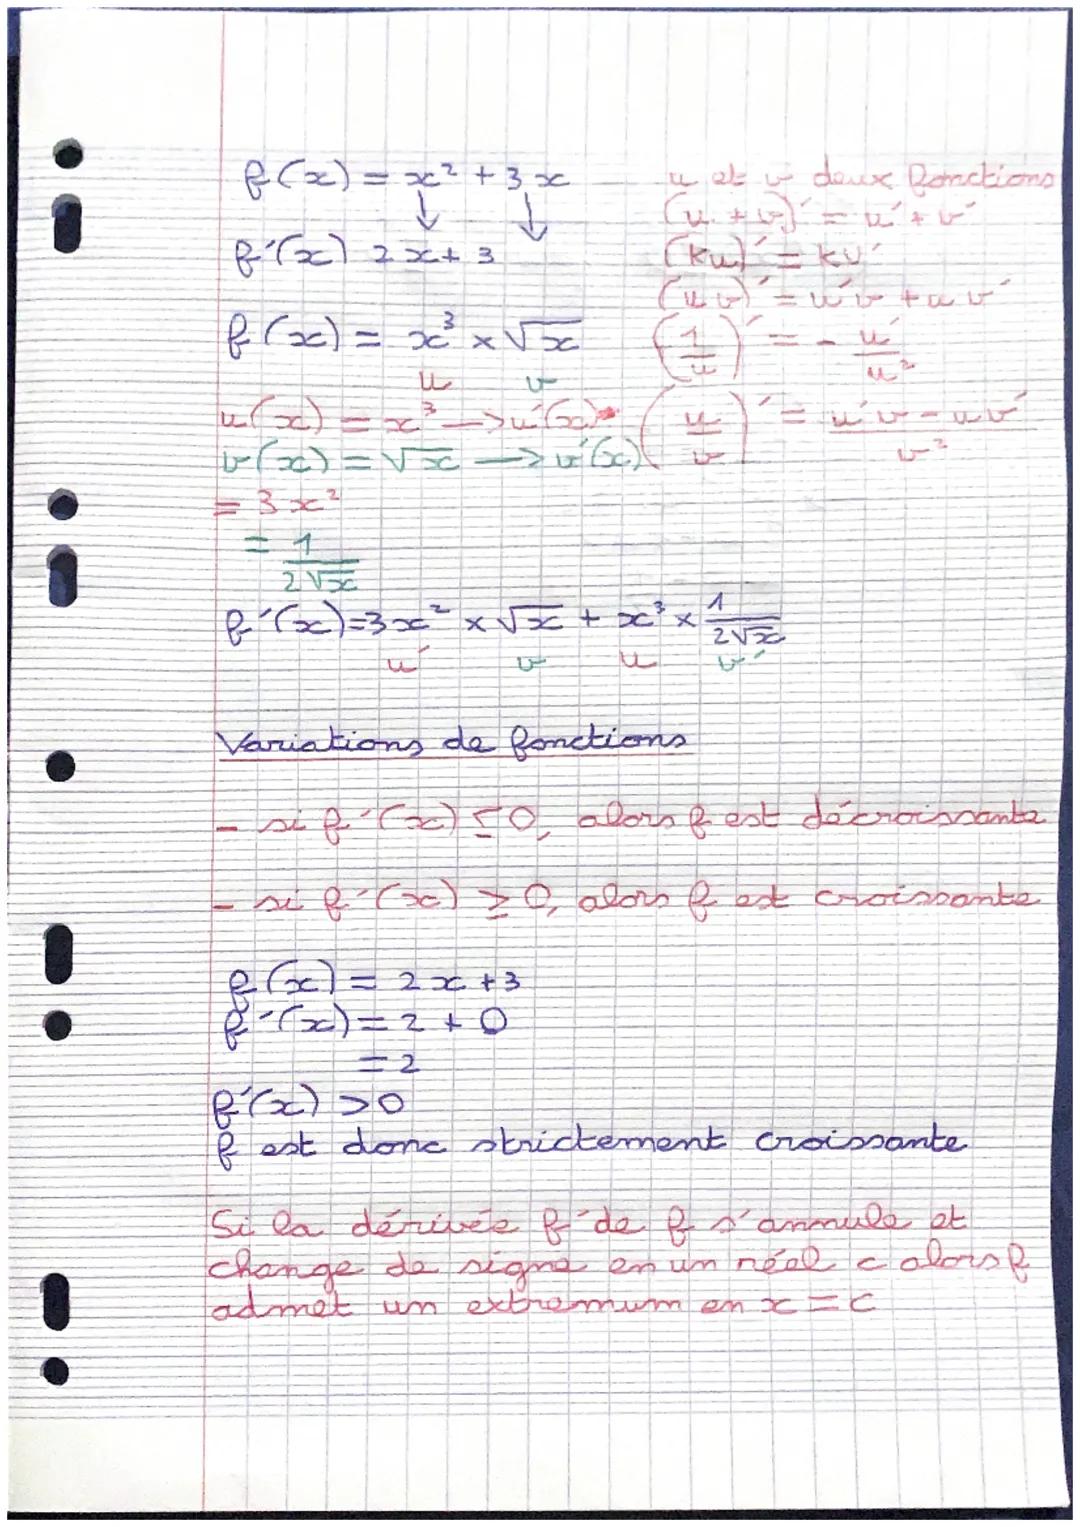 f(x) = x² + 3x
↓ ↓
f'(x) 2x + 3
u et v deux fonctions
(u + v)' = u' + v'
(ku)' = ku'
(uv)' = u'v + uv'
(1/u)' = - u'/u²
(u/v)' = (u'v - uv')/v²
f(x) = x³ × √x
u v
u(x) = x³ → u'(x)
v(x) = √x → v'(x)
= 3x²
= 1/(2√x)
f'(x) = 3x² × √x + x³ × 1/(2√x)
u' v u v'
Variations de fonctions
- si f'(x) ≤ 0, alors f est décroissante
- si f'(x) ≥ 0, alors f est croissante
f(x) = 2x + 3
f'(x) = 2 + 0
= 2
f'(x) > 0
f est donc strictement croissante
Si la dérivée f' de f s'annule et
change de signe en un réel c alors f
admet un extremum en x = c